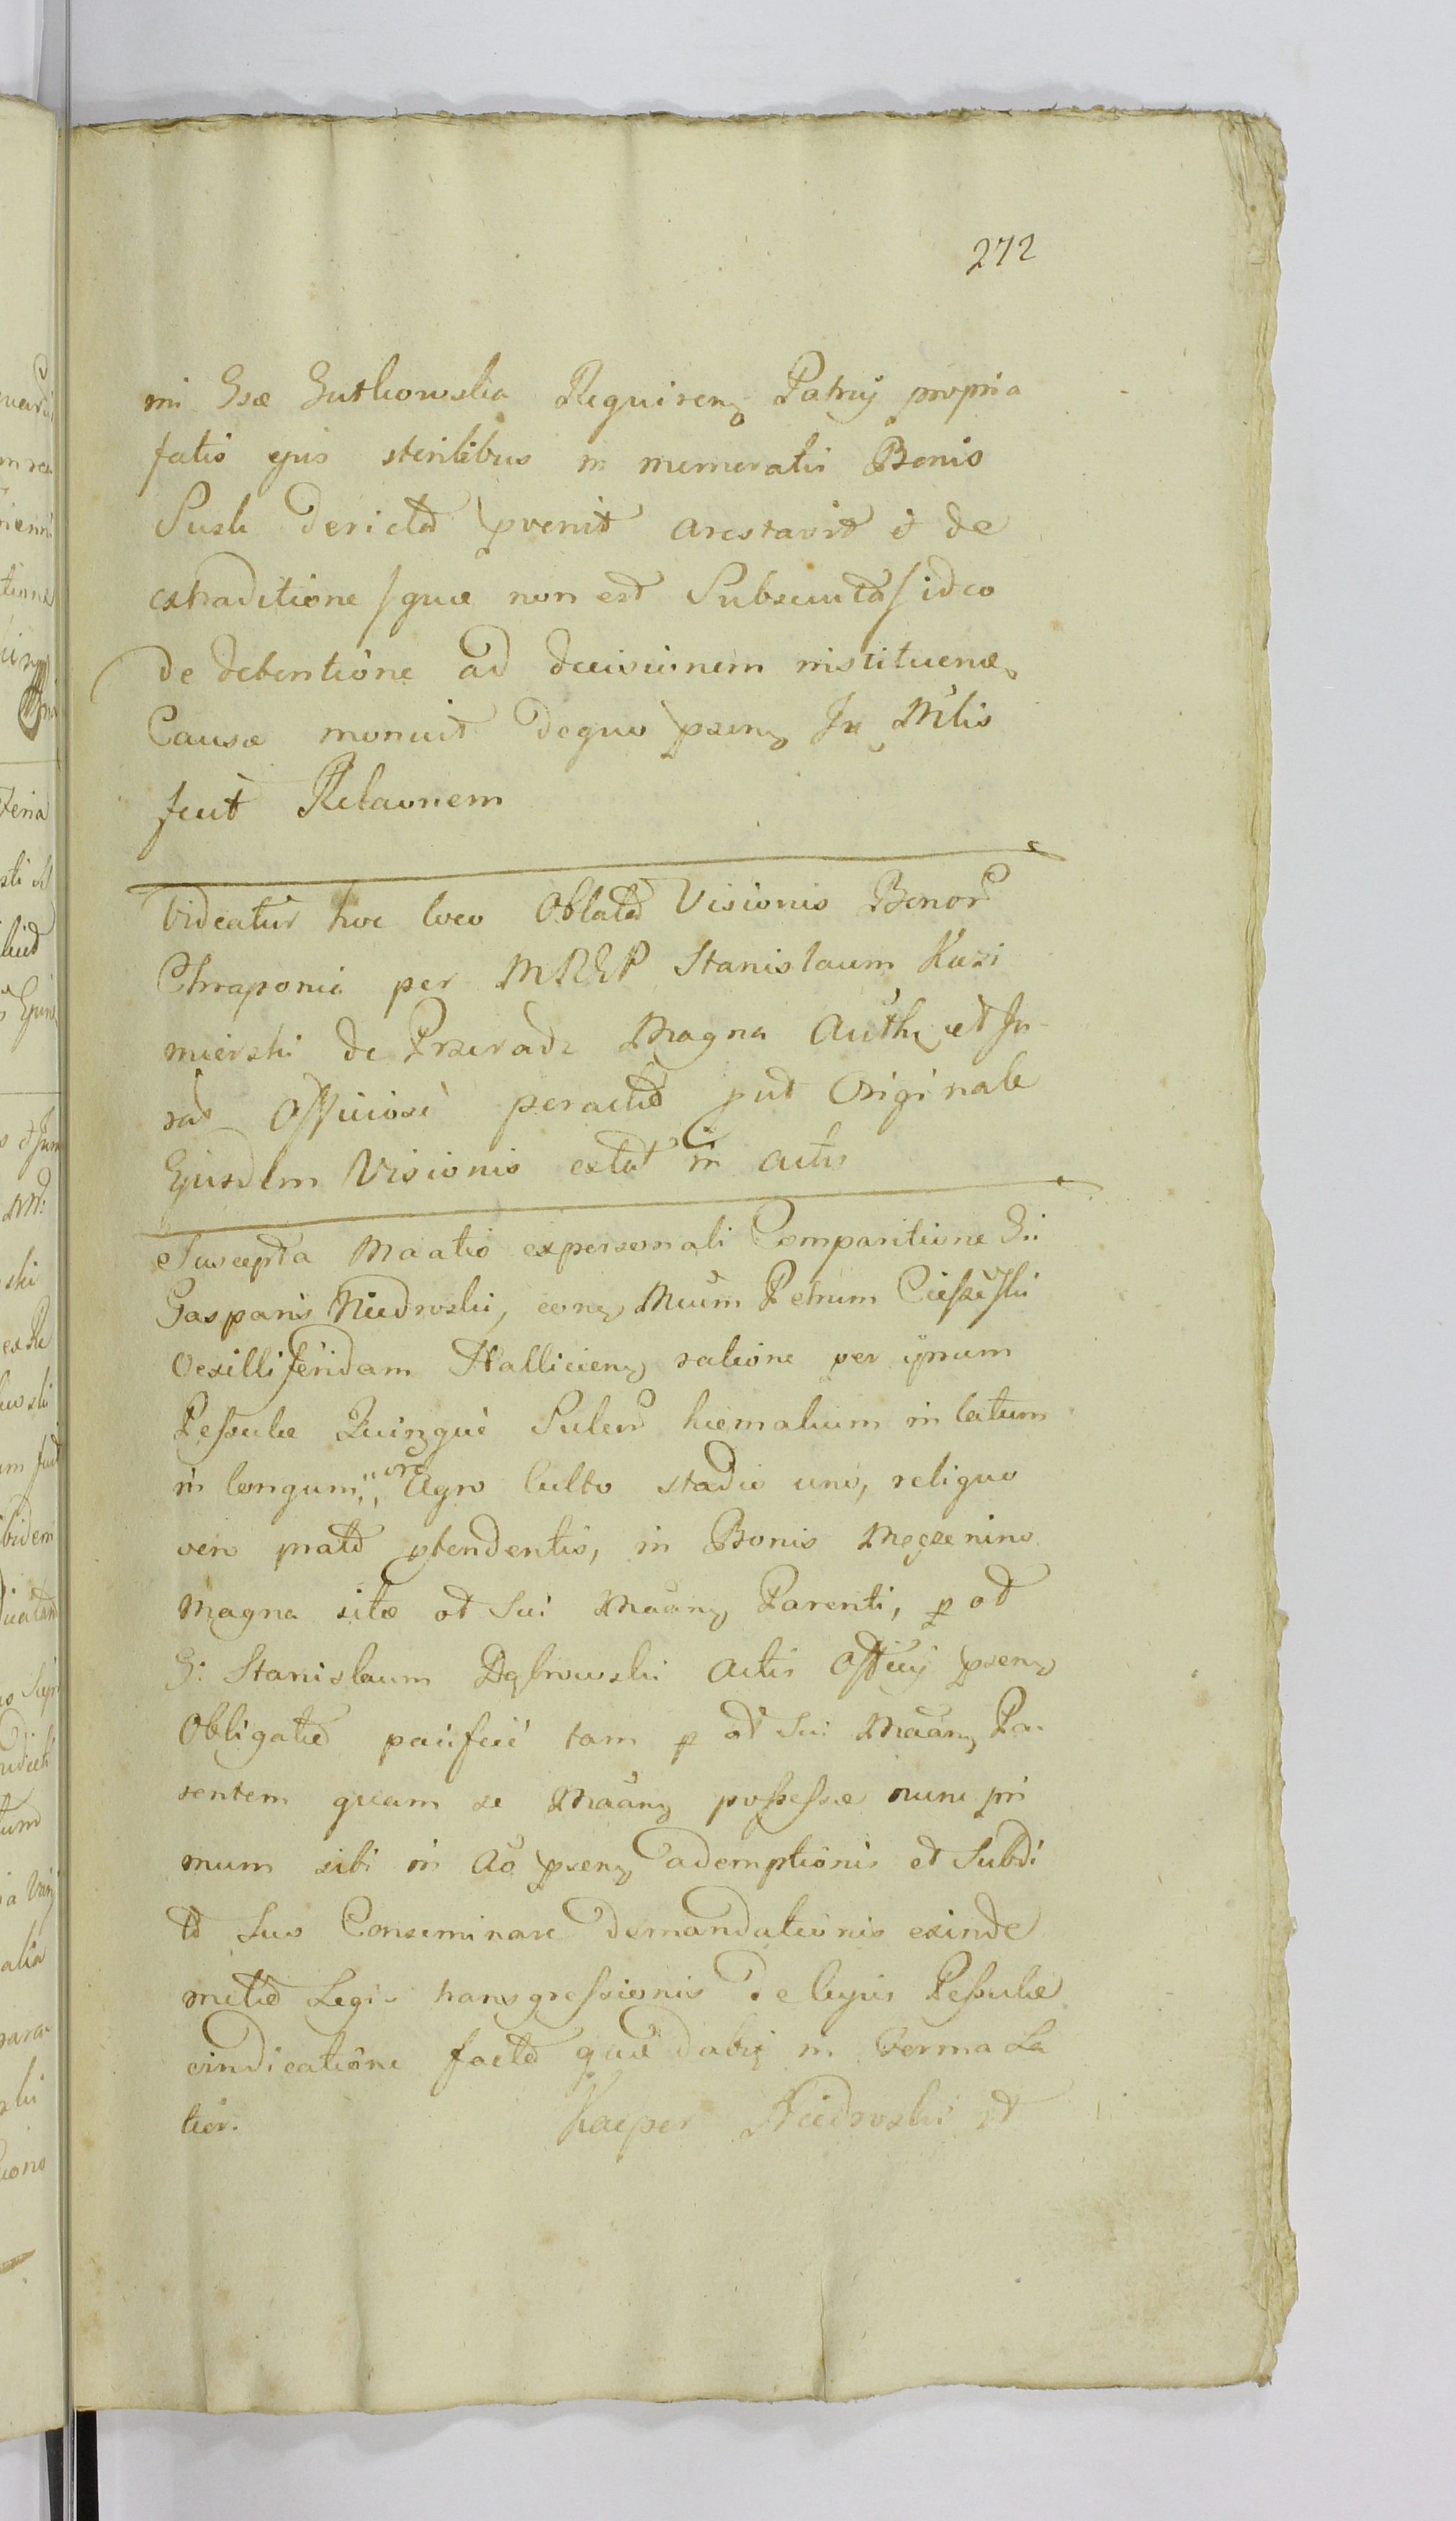 272
mi Gsæ Gutkowska Requirenꝫ Patruÿ propria
fatis ejus sterilibus in memoratis Bonis
Suski derictã pvenit arestavit et de
extraditione /quæ non est Subsecuta/ ideo
de detentione ad decisionem instituenæ
Causæ monuit dequo psenꝫ Mtlis
fecit Relaonem
Videatur hoc loco Oblata Visionis Bonor
Chraponia per MREP Stanislaum Kazi
mierski de Przeradz Magna Auth et Ju
rat Officiose peractæ put Originale
Ejusdem Visionis extat in actis
Suscepta Maatio expersonali Comparitione Gi
Gasparis Niedroski, conꝫ Mcum Petrum Cieszeski
Vexilliferidam Halliciens ratione per ipsum
Pessulæ Quinque Sulcor hiemalium in latum
in longum vro Agro culto stadio uno, reliquo
vero prato ptendentis, in Bonis Meczenino
Magna sitæ olt Sui Maanꝫ Parenti, p olt
G: Stanislaum Dąbrowski actis Officij psenꝫ
Obligatæ pacifice tam p olt Sui Maanꝫ Pa
rentem quam se Maanꝫ possessæ nunc pri
mum sibi in Ao psenꝫ ademptionis et Subdi
to Suo Conseminare demandationis exinde
Legis transgressionis de cujus Pessulæ
vindicatione facta quæ dabiꝫ in Verma La
tior. Kacper Niedroski